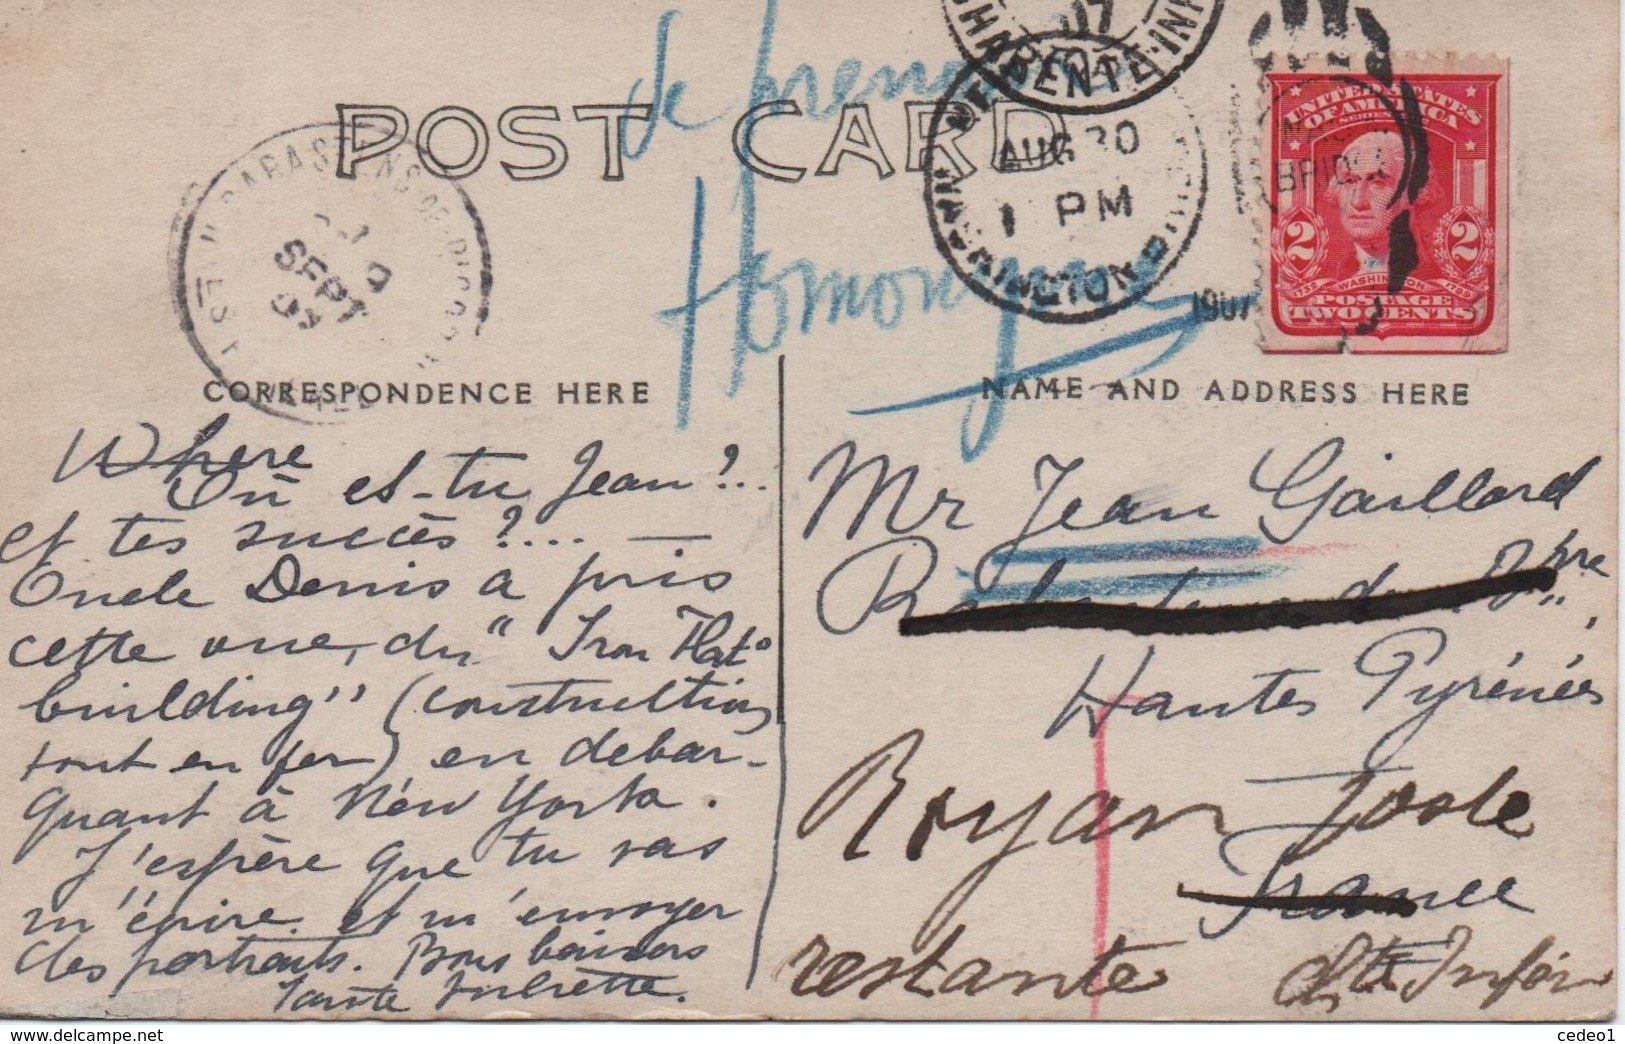 POST CARD
de prenom
Homonyme
CHARENTE-INF
07
WASHINGTON BRIDGE
AUG 30
1 PM
1907
BRIDGE
UNITED STATES
OF AMERICA
SERIES
2 2
1732 WASHINGTON 1799
POSTAGE
TWO CENTS
SEPT
CORRESPONDENCE HERE
NAME AND ADDRESS HERE
Where
Où est-tu Jean?..
et tes succès?....
Oncle Denis a pris
cette vue, du "Iron Flat
building" (construction
tout en fer) en debar-
quant à New York.
J'espère que tu vas
m'écrire et m'envoyer
des portraits. Bons baisers
Tante Juliette.
Mr Jean Gaillard
Hautes Pyrénées
Royan Poste
France
restante Chte Infér
cedeo1